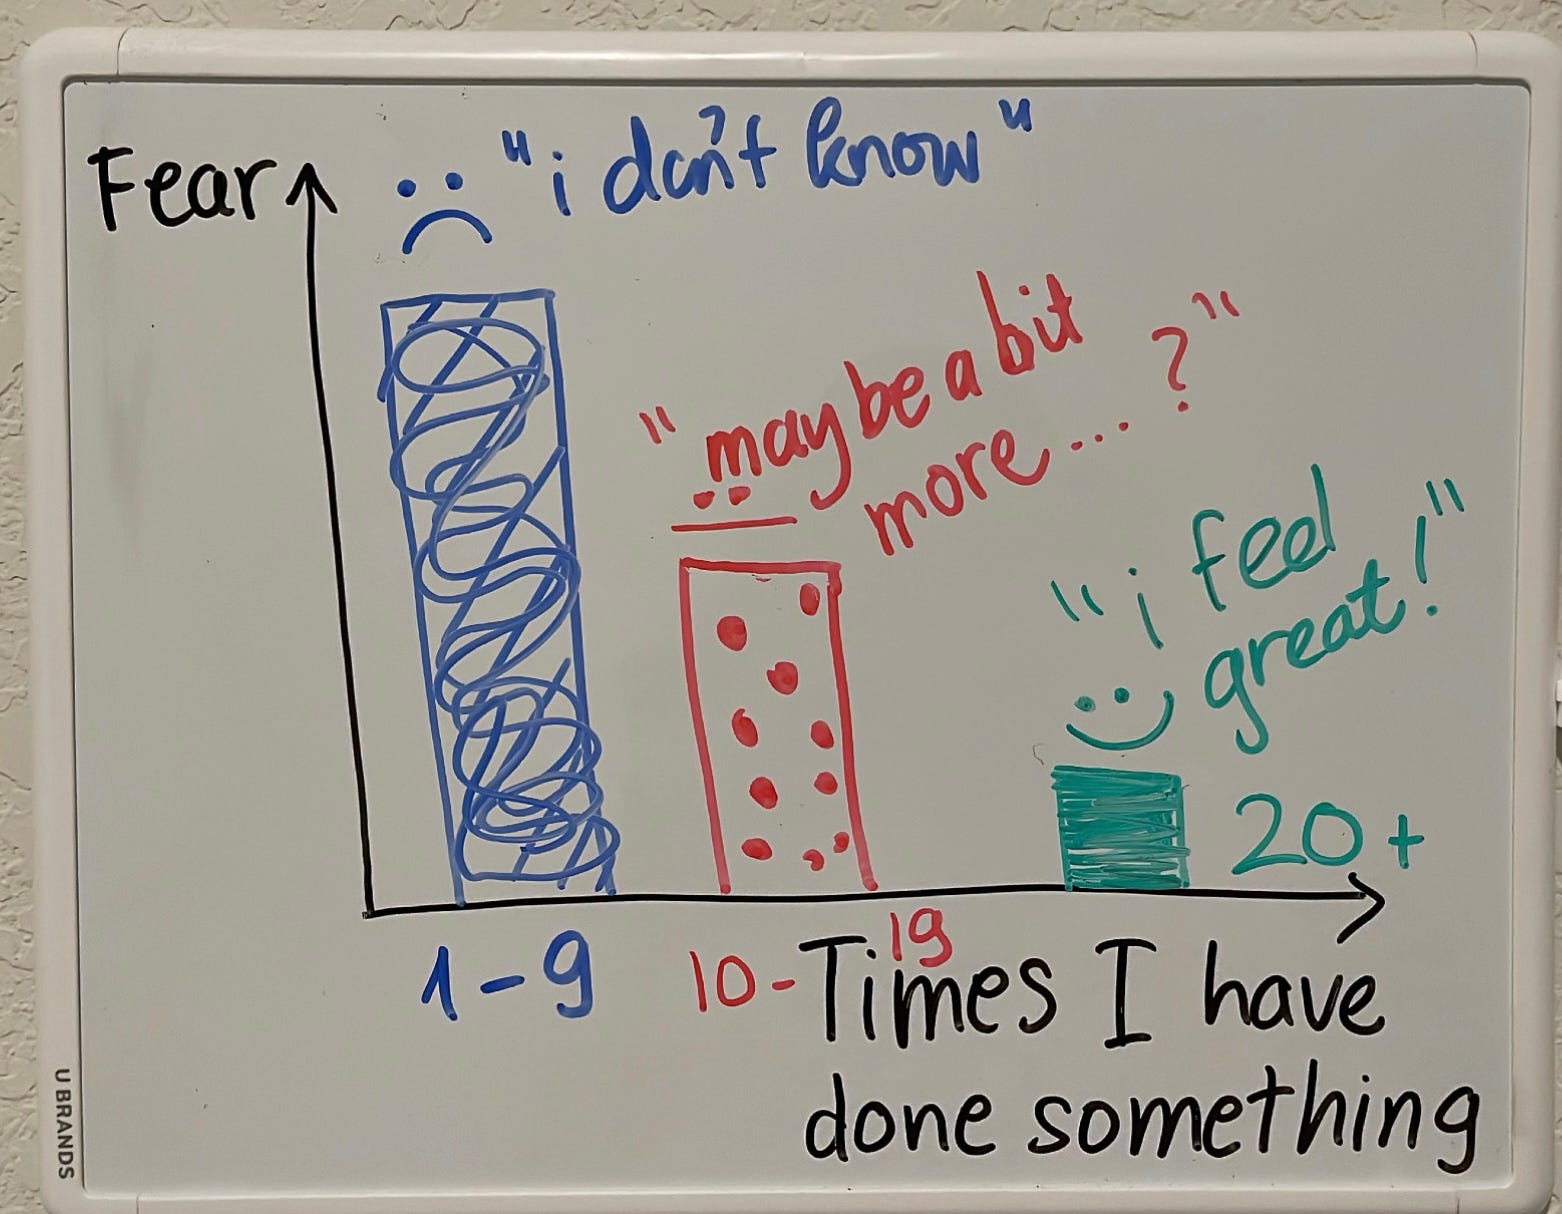 Fear
"i don't know"
"maybe a bit
more....?"
"i feel
great!"
20+
1-9
10-19
Times I have
done something
U BRANDS